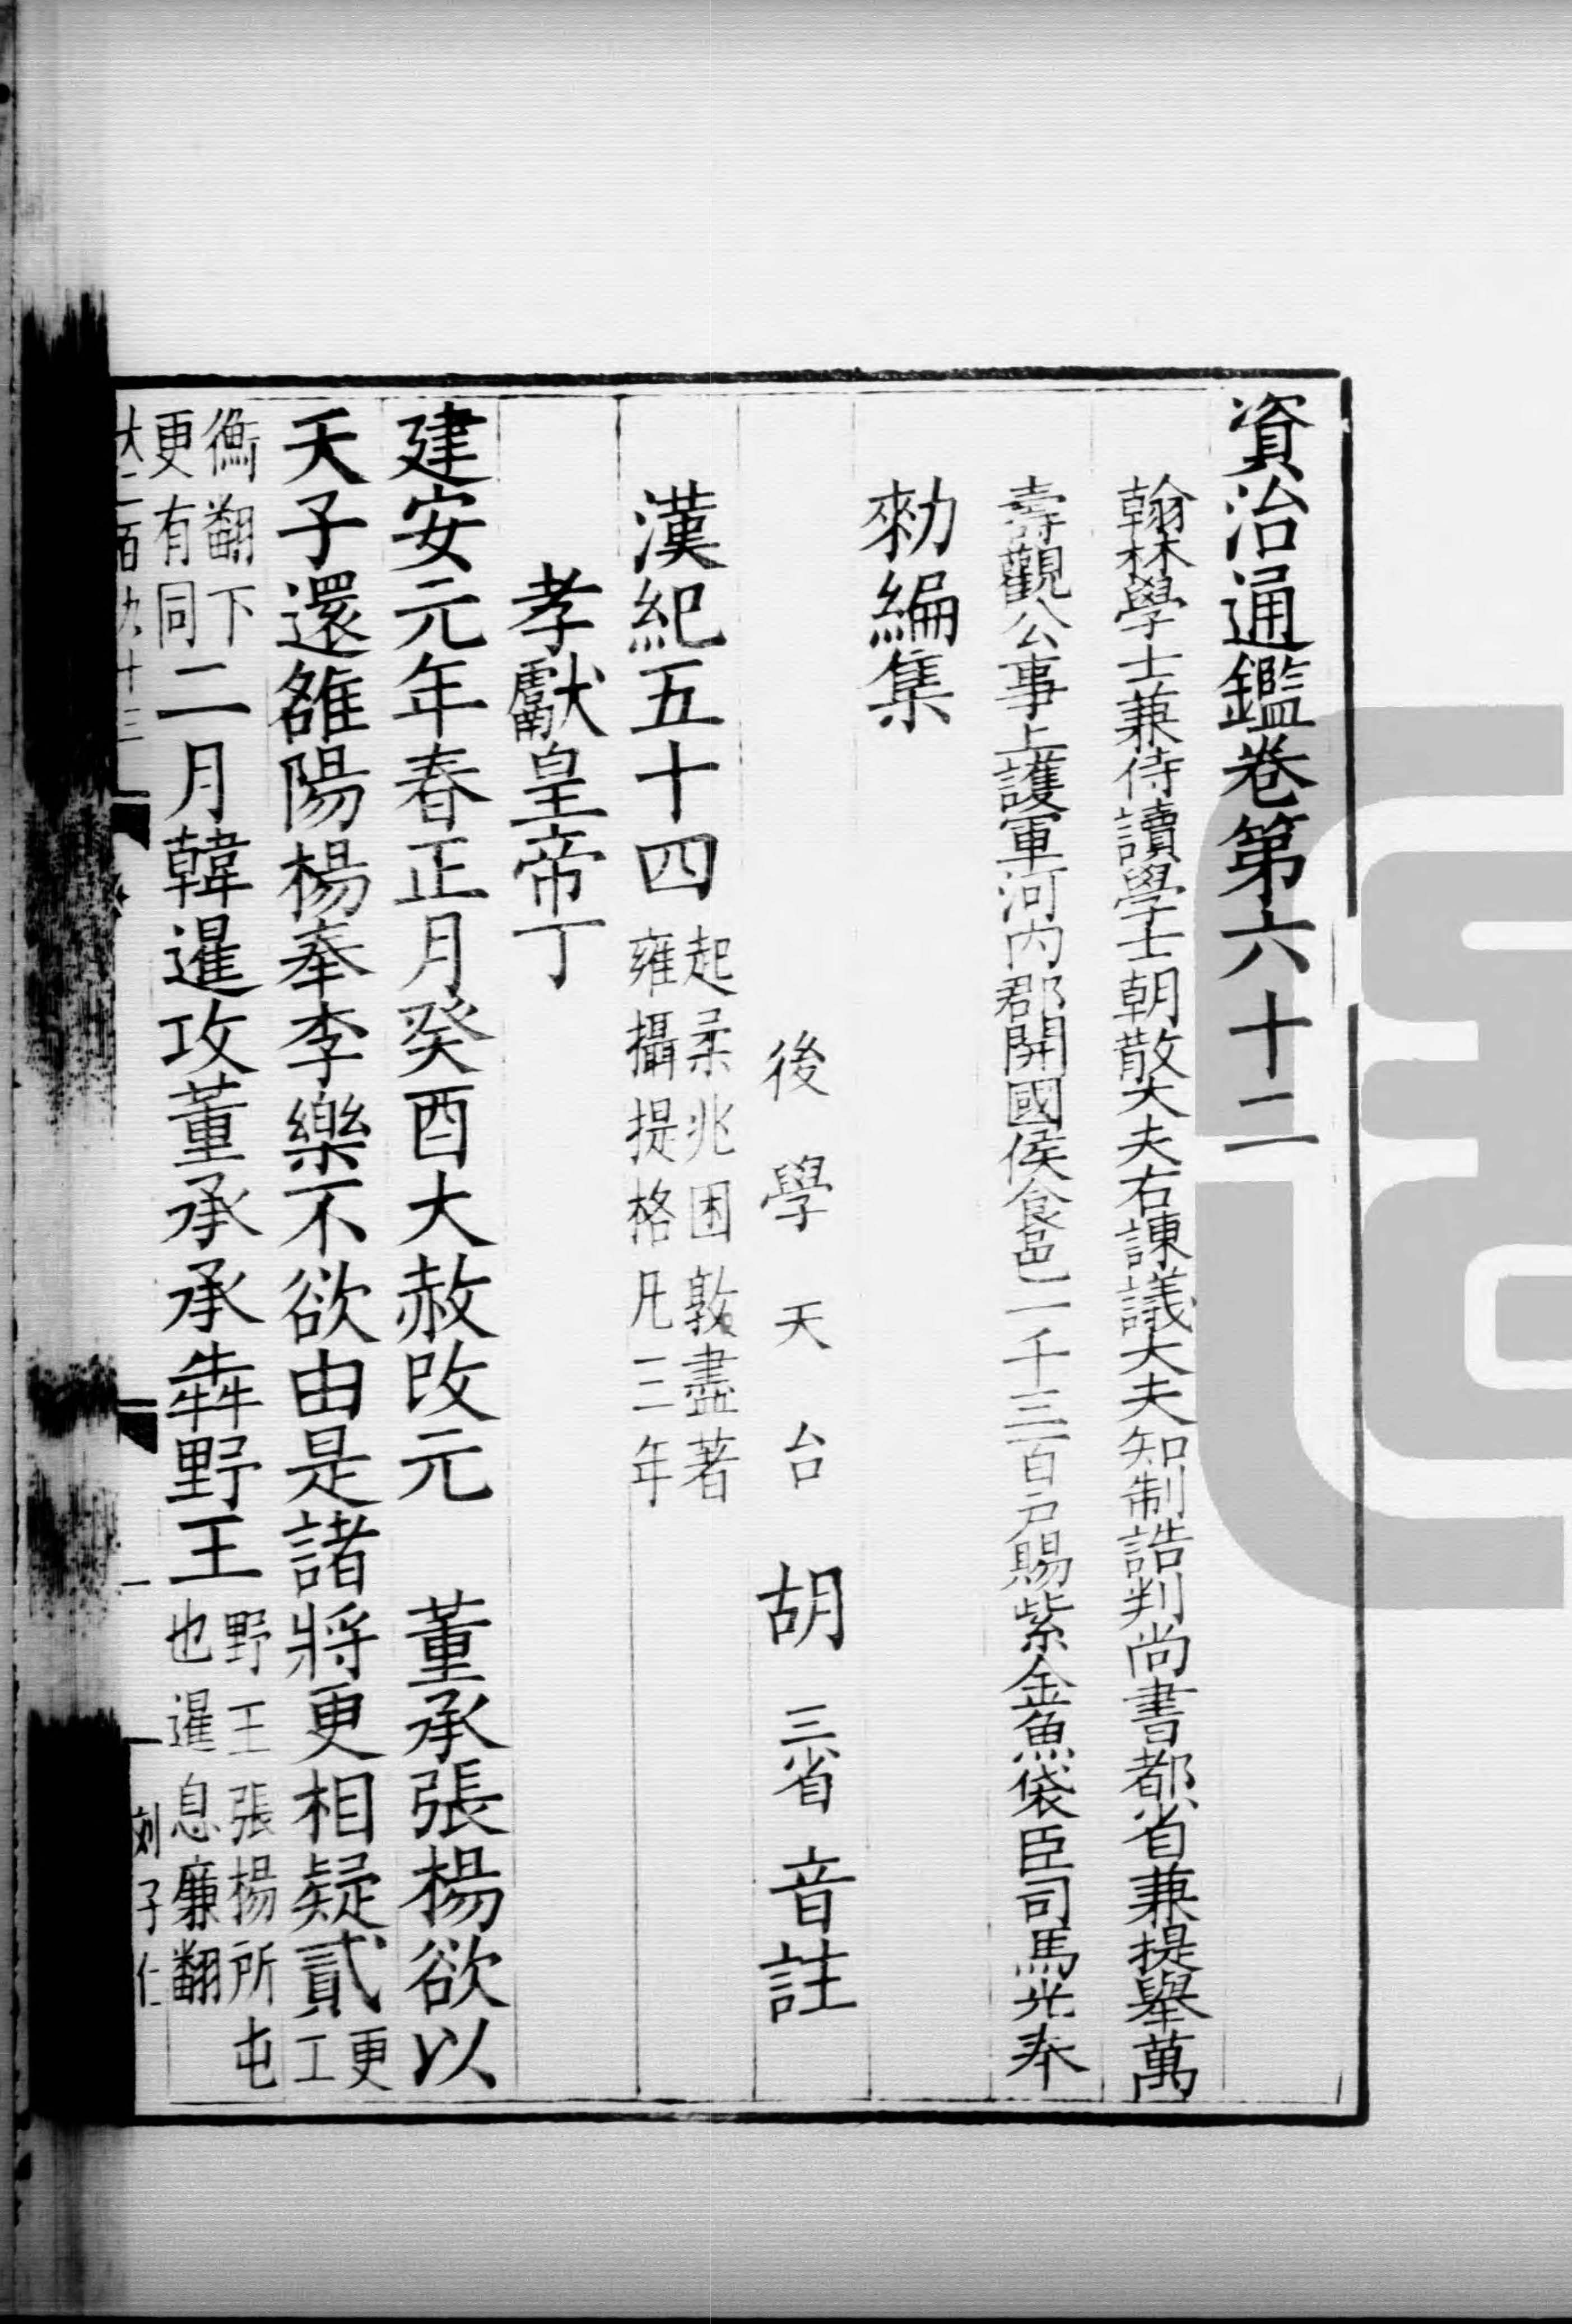 資治通鑑卷第六十二
翰林學士兼侍讀學士朝散大夫右諫議大夫知制誥判尚書都省兼提舉萬
壽觀公事上護軍河內郡開國侯食邑一千三百戶賜紫金魚袋臣司馬光奉
勑編集
後學天台胡三省音註
漢紀五十四起柔兆困敦盡著雍攝提格凡三年
孝獻皇帝丁
建安元年春正月癸酉大赦改元　董承張楊欲以
天子還雒陽楊奉李樂不欲由是諸將更相疑貳更工
衡翻下更有同二月韓暹攻董承承犇野王野王張楊所屯也暹息廉翻
刘子仁